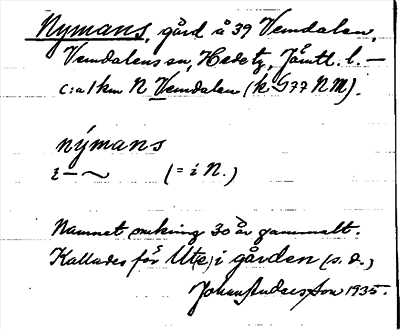 Nymans, gård å 39 Vemdalen,
Vemdalens sn, Hede tg, Jämtl. l. —
c:a 1 km N Vemdalen (k G77 NM).
nýmans
i — ~ (= i N.)
Namnet omkring 30 år gammalt.
Kallades förr Ut(e) i gården (s. d.)
Johan Andersson 1935.